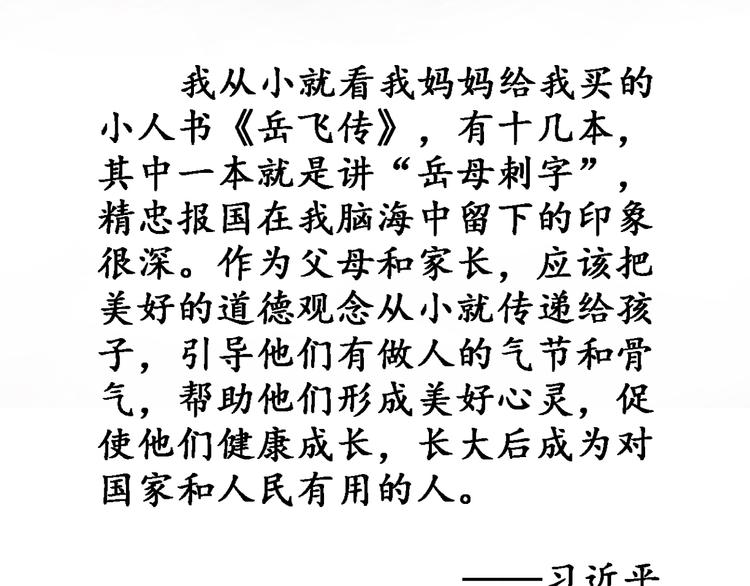 我从小就看我妈妈给我买的
小人书《岳飞传》，有十几本，
其中一本就是讲“岳母刺字”，
精忠报国在我脑海中留下的印象
很深。作为父母和家长，应该把
美好的道德观念从小就传递给孩
子，引导他们有做人的气节和骨
气，帮助他们形成美好心灵，促
使他们健康成长，长大后成为对
国家和人民有用的人。
——习近平